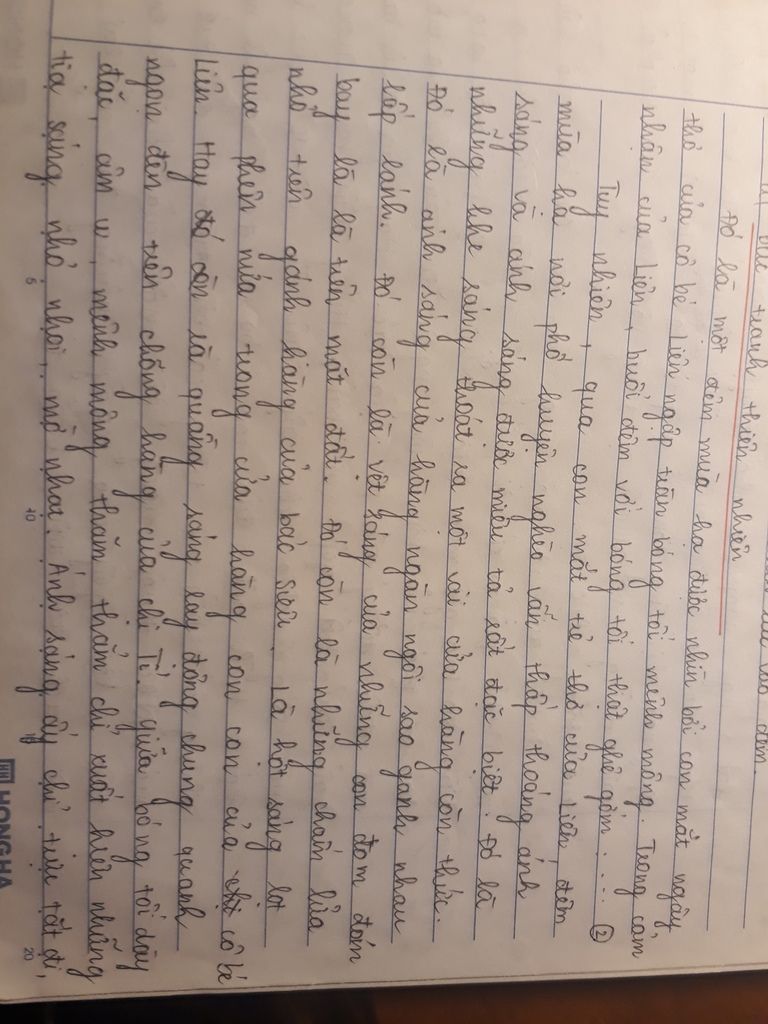 bức tranh thiên nhiên
đêm.
Đó là một đêm mùa hạ được nhìn bởi con mắt ngây
thơ của cô bé Liên ngập tràn bóng tối mênh mông. Trong cảm
nhận của Liên, buổi đêm với bóng tối thật ghê gớm.... ②
Tuy nhiên, qua con mắt trẻ thơ của Liên đêm
mùa hạ nơi phố huyện nghèo vẫn thấp thoáng ánh
sáng và ánh sáng được miêu tả rất đặc biệt. Đó là
những khe sáng thoát ra một vài cửa hàng còn thức.
Đó là ánh sáng của hàng ngàn ngôi sao ganh nhau
lấp lánh. Đó còn là vệt sáng của những con đom đóm
bay là là trên mặt đất. Đó còn là những chấm lửa
nhỏ trên gánh hàng của bác Siêu. Là hột sáng lọt
qua phên nứa trong cửa hàng con con của cô bé
Liên. Hay đó còn là quầng sáng lay động chung quanh
ngọn đèn trên chõng hàng của chị Tí. giữa bóng tối dày
đặc, âm u, mênh mông thăm thẳm chỉ xuất hiện những
tia sáng nhỏ nhoi, mờ nhạt. Ánh sáng ấy chỉ trực tắt đi,
5 10 15 20
HONG HA